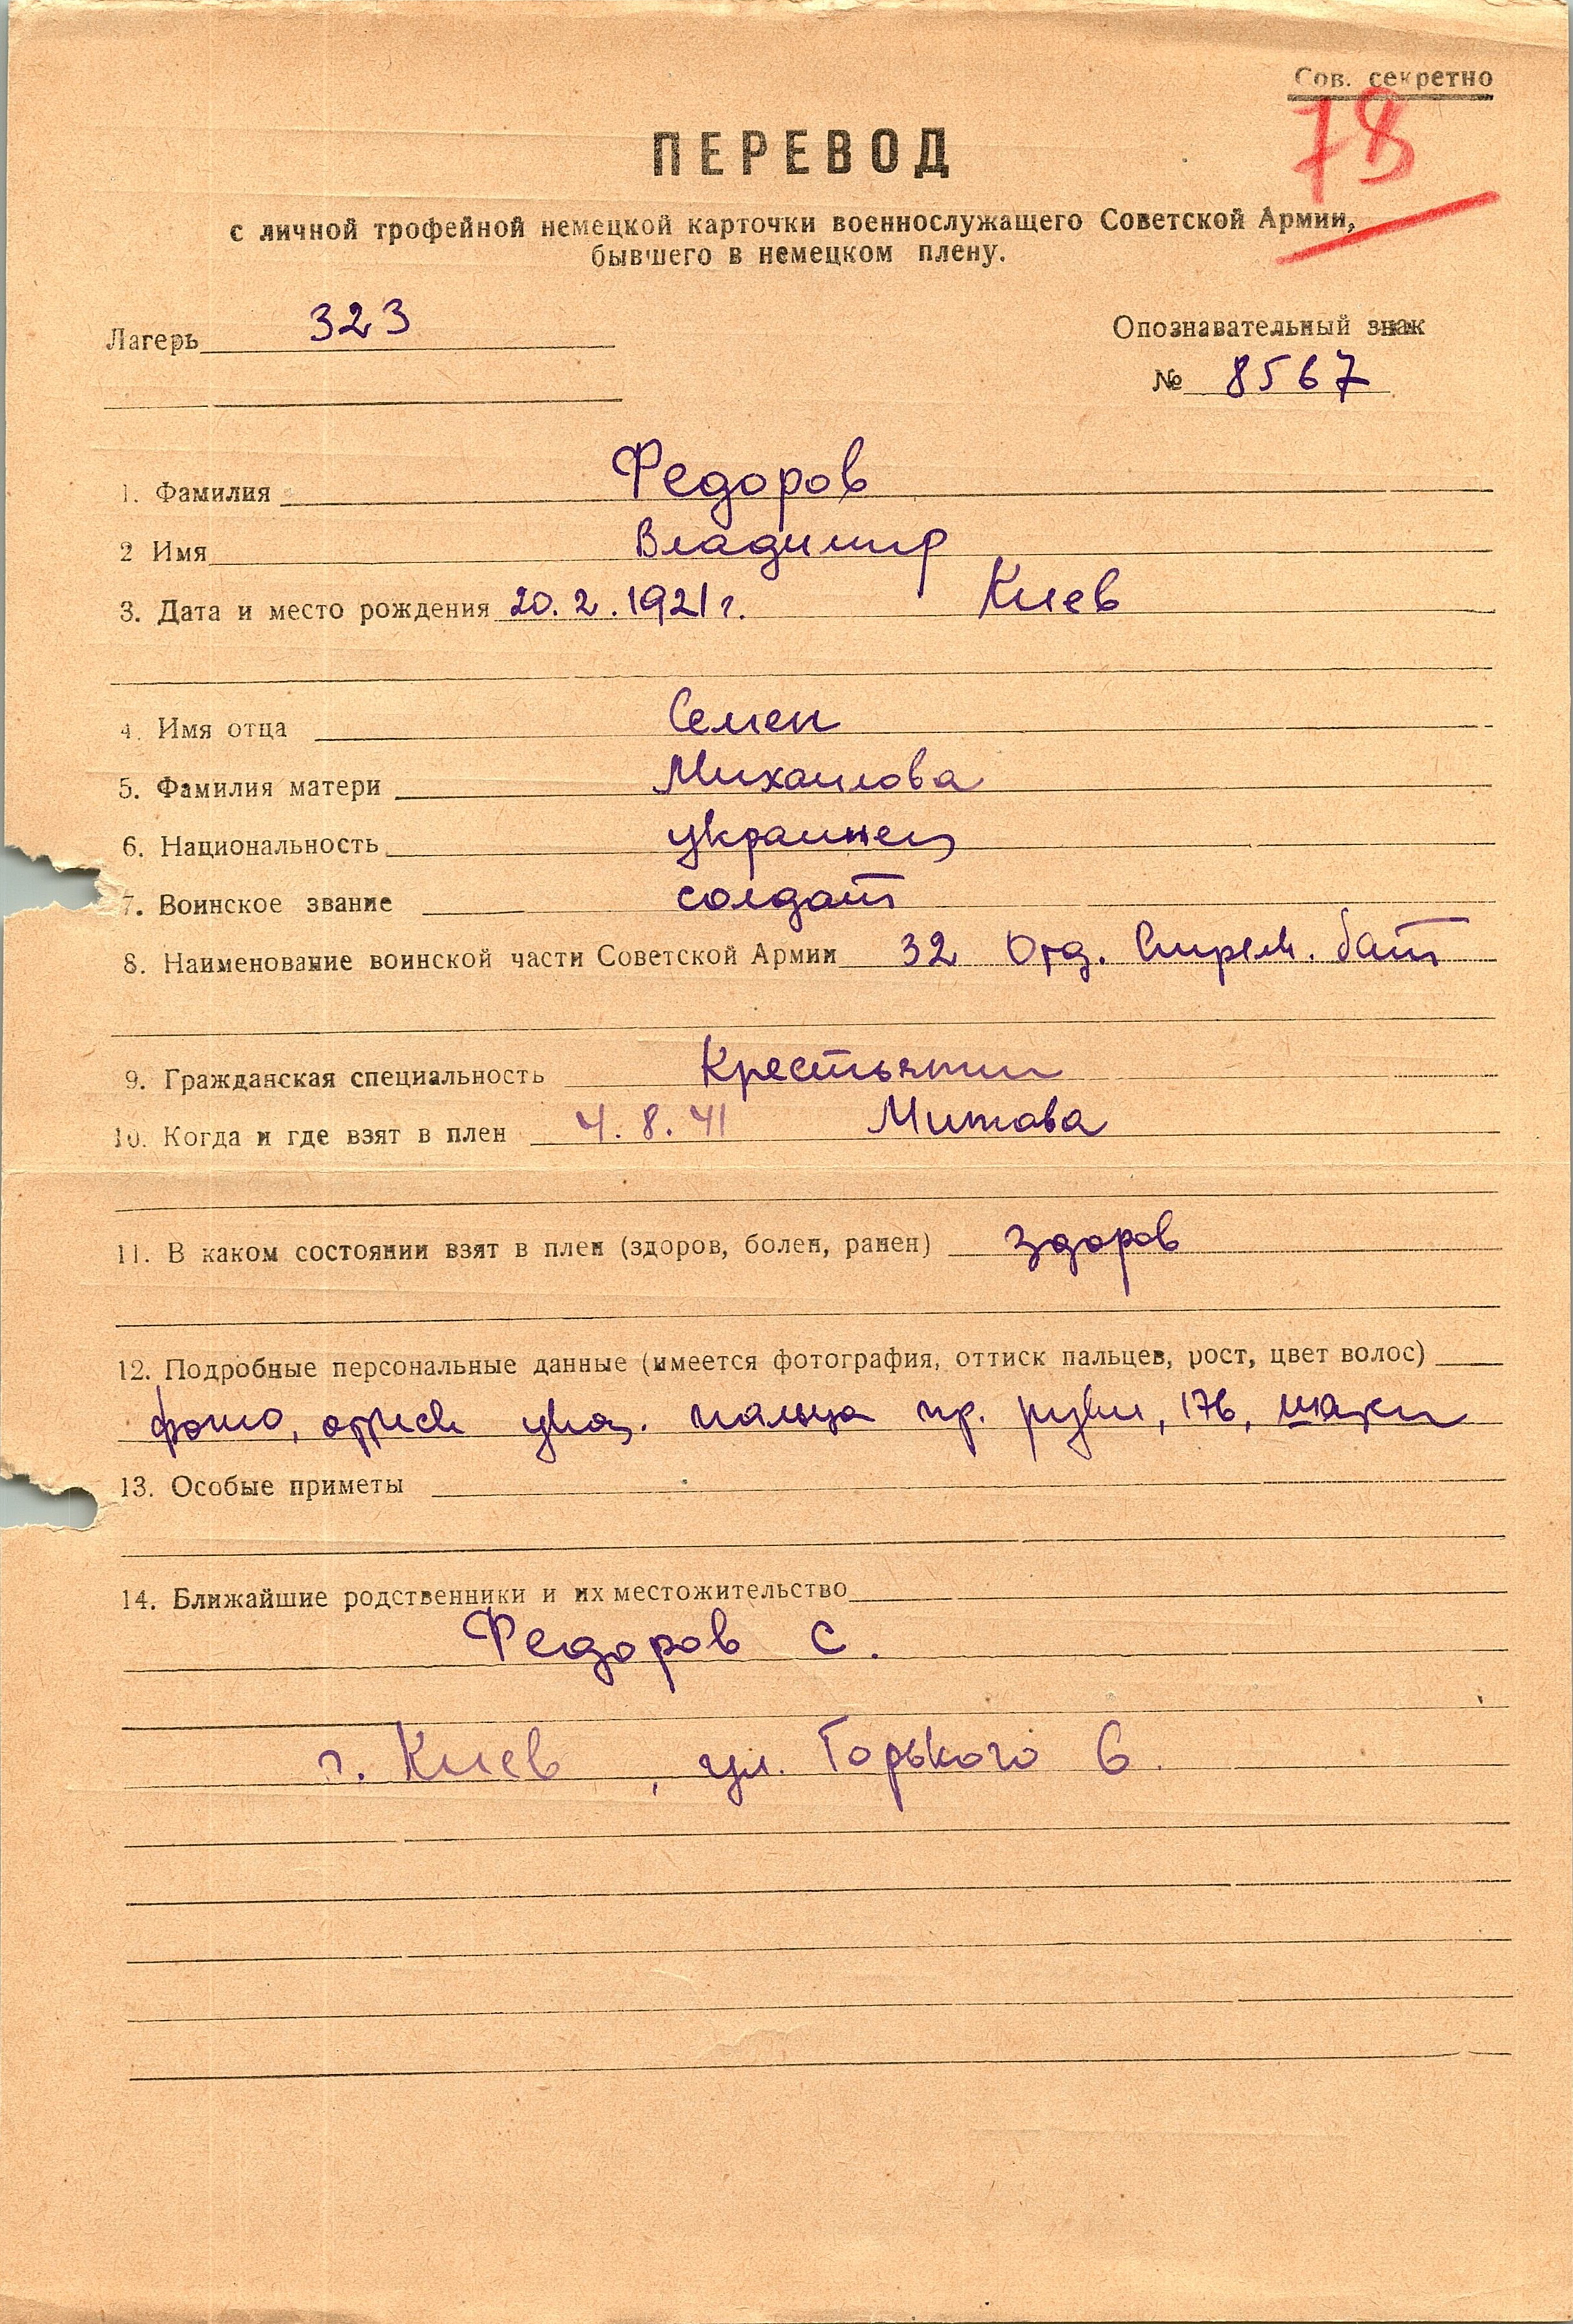 Сов. секретно
78
ПЕРЕВОД
с личной трофейной немецкой карточки военнослужащего Советской Армии,
бывшего в немецком плену.
Лагерь 323
Опознавательный знак
№ 8567
1. Фамилия Федоров
2 Имя Владимир
3. Дата и место рождения 20.2.1921 г. Киев
4. Имя отца Семен
5. Фамилия матери Михаилова
6. Национальность украинец
7. Воинское звание солдат
8. Наименование воинской части Советской Армии 32 Отд. бат
9. Гражданская специальность Крестьянин
10. Когда и где взят в плен 4.8.41 Митава
11. В каком состоянии взят в плен (здоров, болен, ранен) здоров
12. Подробные персональные данные (имеется фотография, оттиск пальцев, рост, цвет волос)
фото, оттиск указ. пальца пр. руки, 176,
13. Особые приметы
14. Ближайшие родственники и их местожительство
Федоров С.
г. Киев, ул. Горького 6.